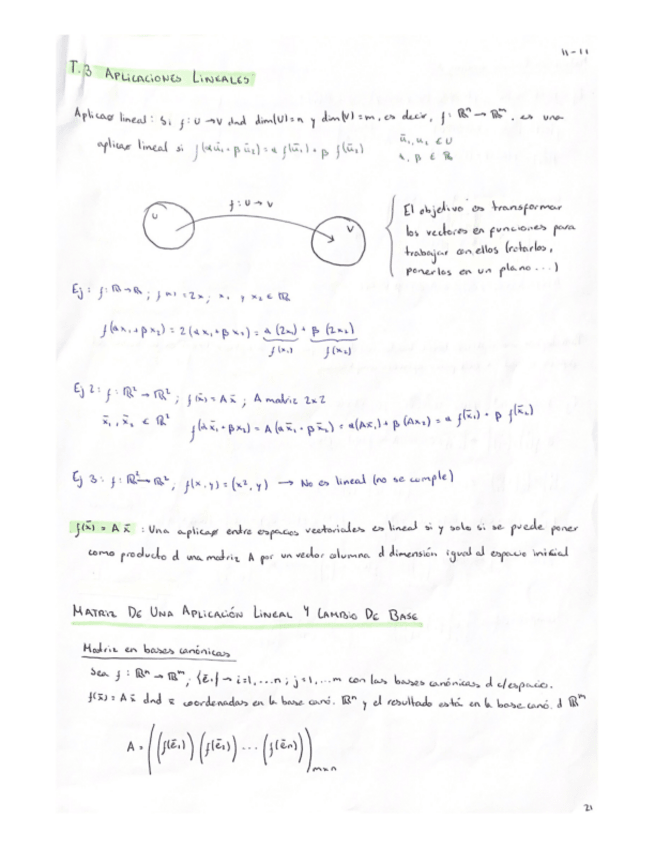 11-11
T.3 APLICACIONES LINEALES
Aplicao lineal: Si f: U → V dnd dim(U)=n y dim(V)=m, es decir, f: ℝⁿ → ℝᵐ. es una
aplicao lineal si f(αū₁ + βū₂) = α f(ū₁) + β f(ū₂)
ū₁, u₂ ∈ U
α, β ∈ ℝ
f: U → V
U
V
El objetivo es transformar
los vectores en funciones para
trabajar con ellos (rotarlos,
ponerlos en un plano...)
Ej: f: ℝ → ℝ; f(x) = 2x; x₁ y x₂ ∈ ℝ
f(αx₁ + βx₂) = 2(αx₁ + βx₂) = α (2x₁) + β (2x₂)
f(x₁) f(x₂)
Ej 2: f: ℝ² → ℝ²; f(x̄) = A x̄; A matriz 2x2
x̄₁, x̄₂ ∈ ℝ² f(αx̄₁ + βx₂) = A(αx̄₁ + βx̄₂) = α(Ax₁) + β(Ax₂) = α f(x̄₁) + β f(x̄₂)
Ej 3: f: ℝ² → ℝ²; f(x,y) = (x², y) → No es lineal (no se cumple)
f(x̄) = A x̄ : Una aplicao entre espacios vectoriales es lineal si y solo si se puede poner
como producto d una matriz A por un vector columna d dimensión igual al espacio inicial
MATRIZ DE UNA APLICACIÓN LINEAL Y CAMBIO DE BASE
Matriz en bases canónicas
Sea f: ℝⁿ → ℝᵐ; {ē.} → i=1,...n; j=1,...m con las bases canónicas d c/espacio.
f(x̄) = A x̄ dnd x̄ coordenadas en la base canó. ℝⁿ y el resultado está en la base canó. d ℝᵐ
A = ((f(ē₁)) (f(ē₂)) ... (f(ēn)))mxn
21